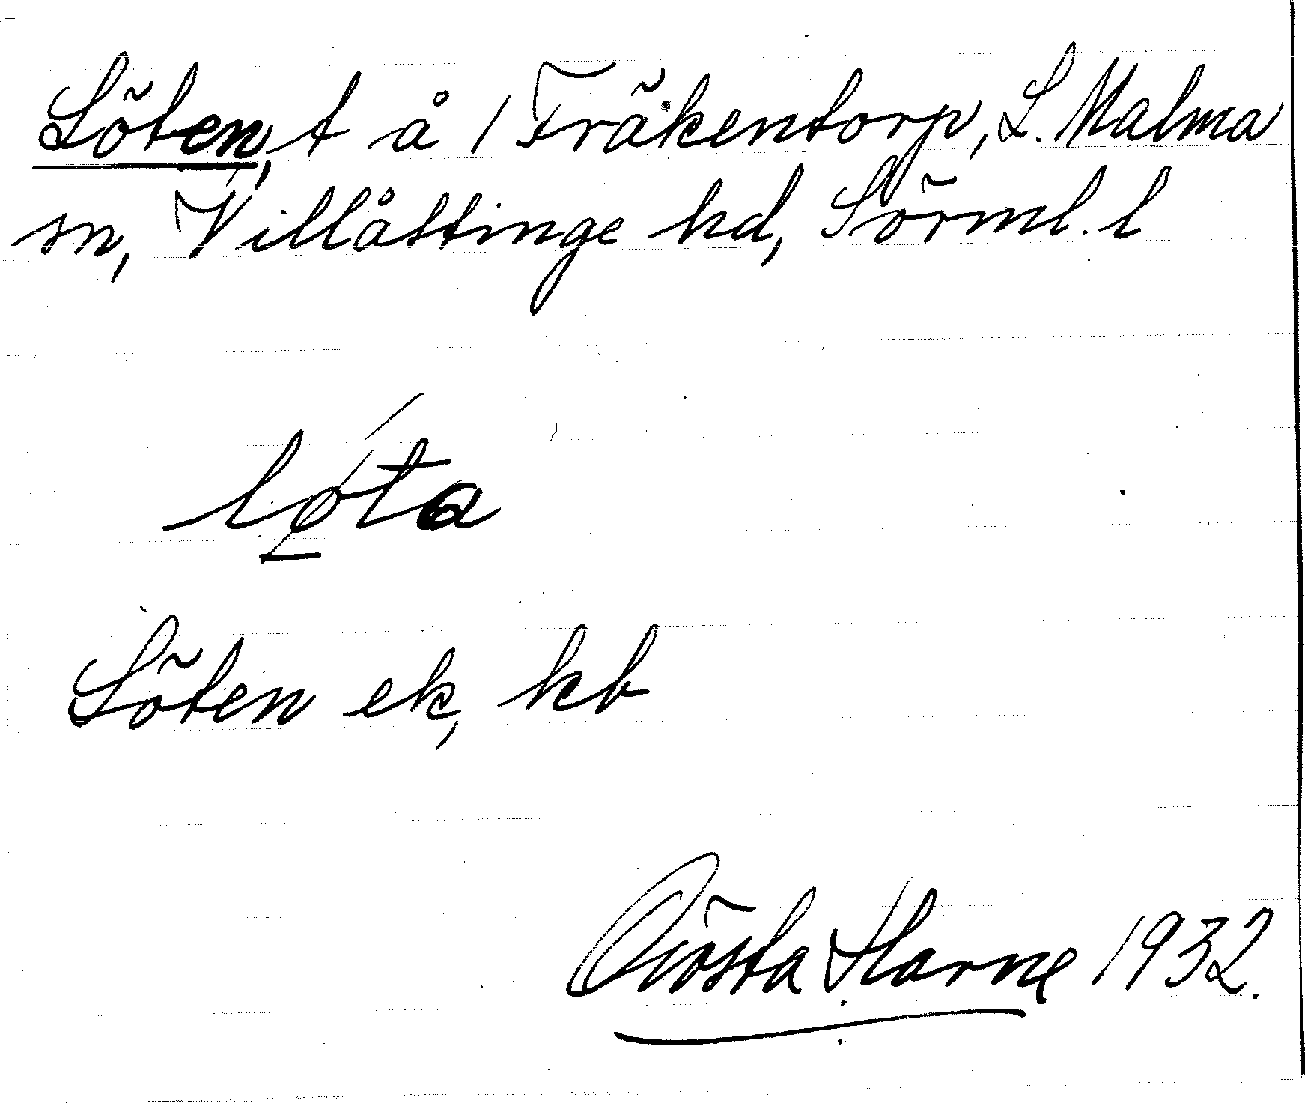 Löten, t å 1 Fräkentorp, L. Malma
sn, Villåttinge hd, Sörml. l
løta
Löten ek, kb
Gösta Harne 1932.